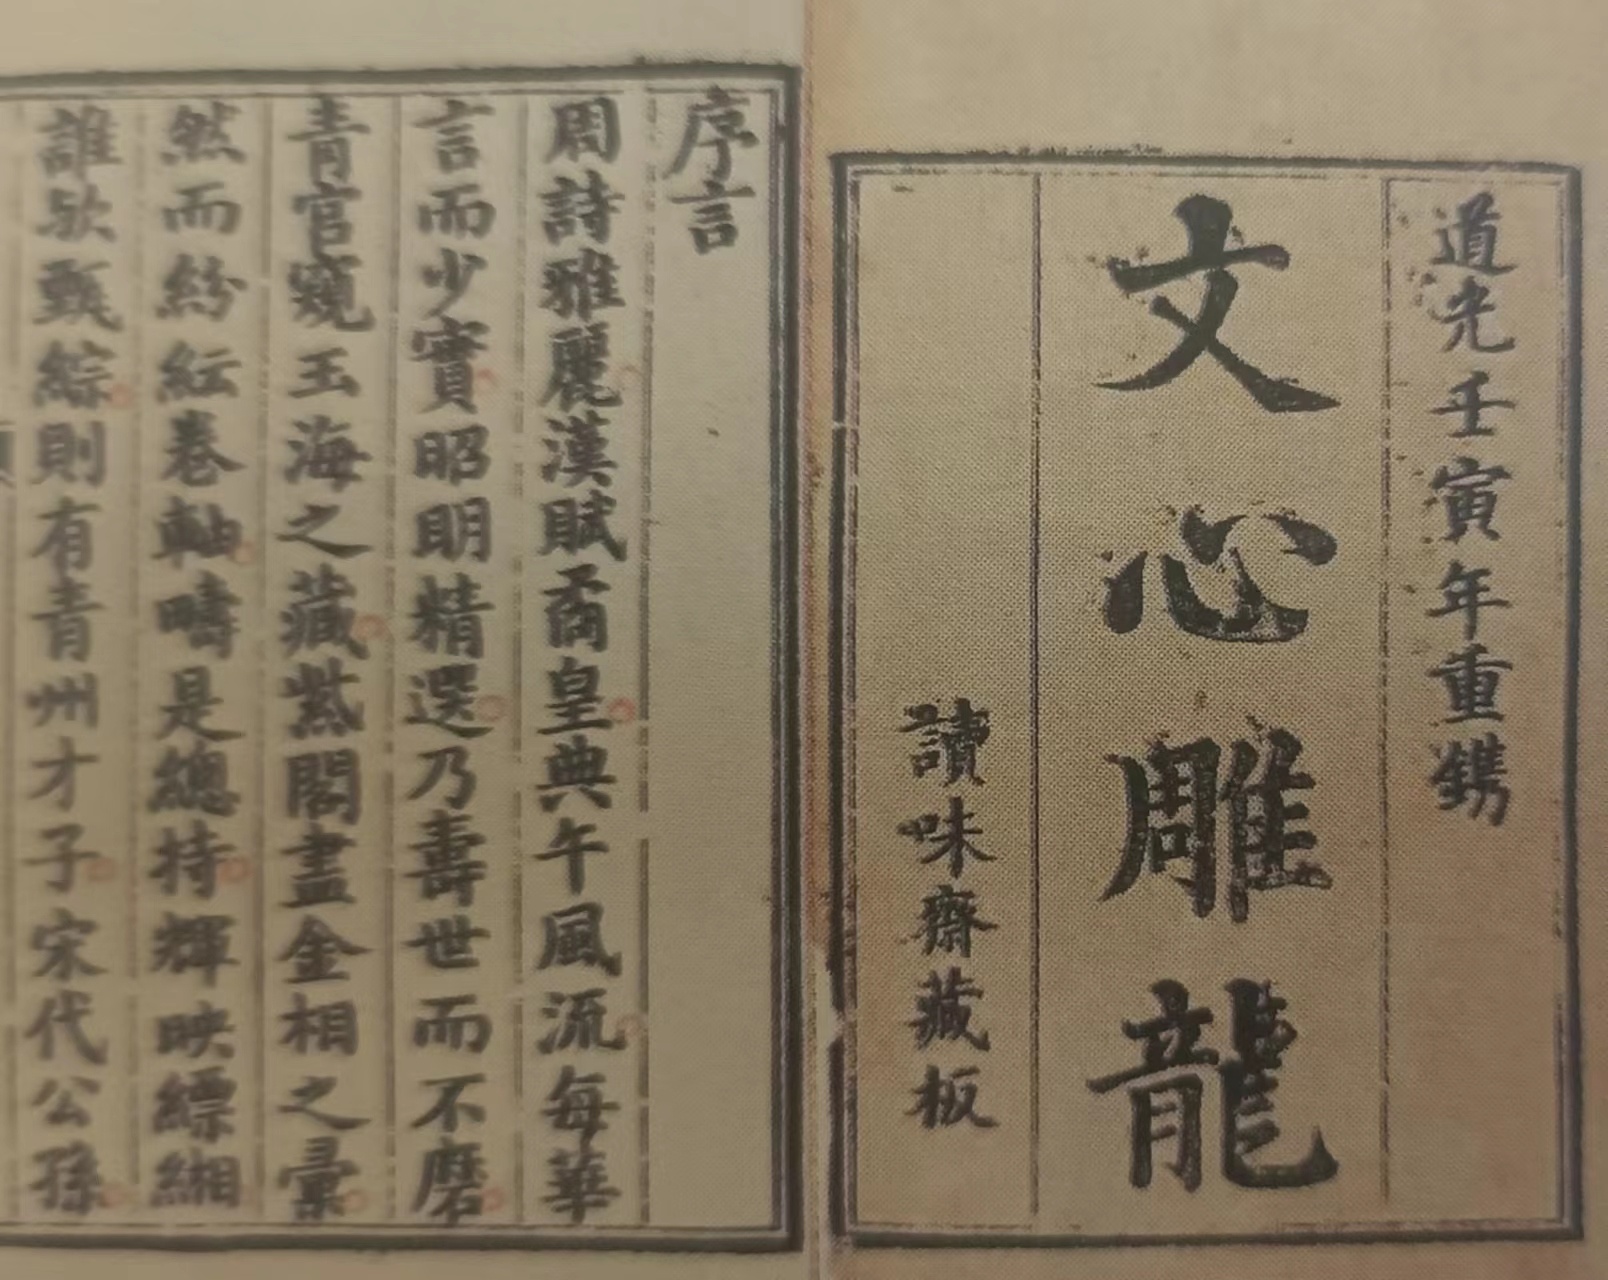 道光壬寅年重鐫
文心雕龍
讀味齋藏板
序言
周詩雅麗漢賦矞皇典午風流每華
言而少實昭明精選乃壽世而不磨
青宮窺玉海之藏紫閣盡金相之彙
然而紛紜卷軸疇是總持輝映縹緗
誰欤甄綜則有青州才子宋代公孫